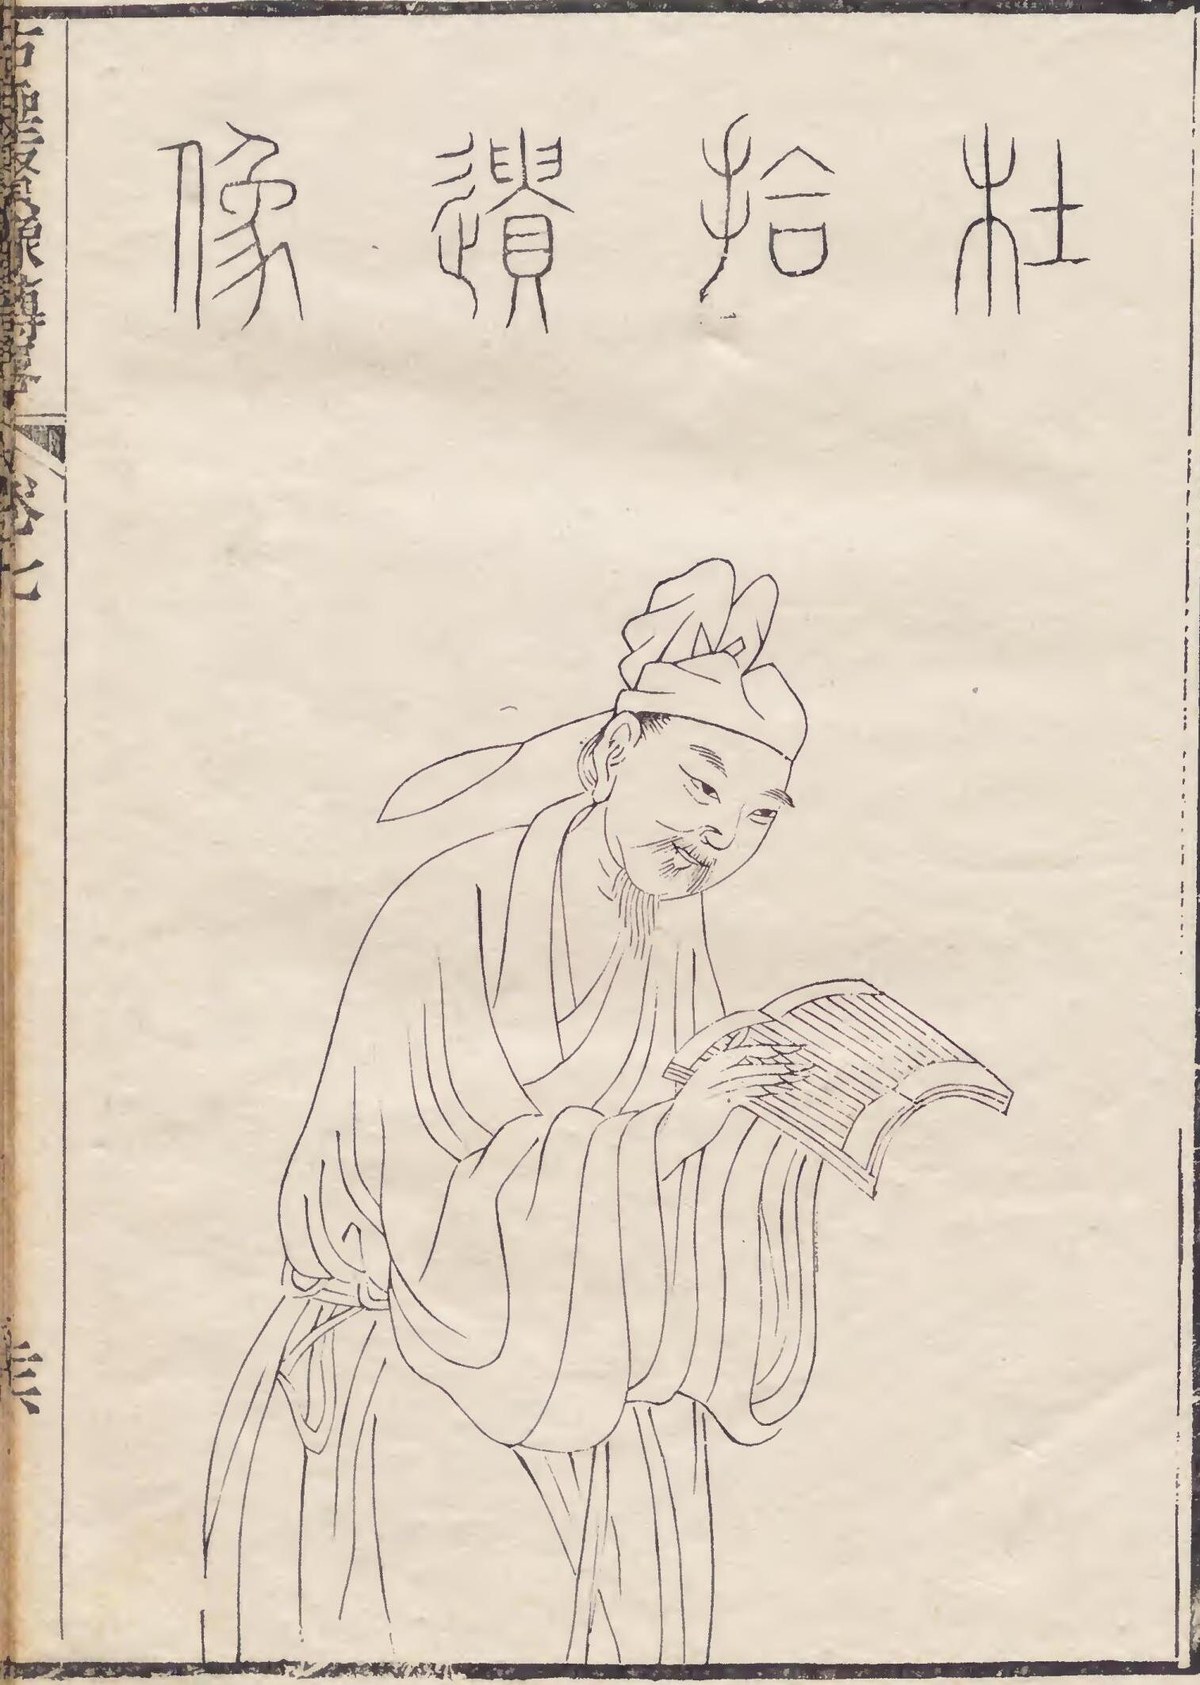 杜拾遺像
古聖賢像傳畧
卷七